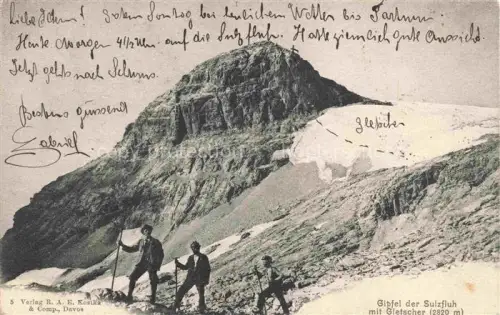 Liebe Eltern! Gestern Sonntag bei herrlichem Wetter bis Partnun.
Heute Morgen 4 1/2 Uhr auf die Sulzfluh. Hatte ziemlich gute Aussicht
Jetzt gehts nach Schruns.
Bestens grüssend
Gabriel
Gletscher
5 Verlag B. A. E. Kostka
& Comp., Davos
Gipfel der Sulzfluh
mit Gletscher (2820 m)